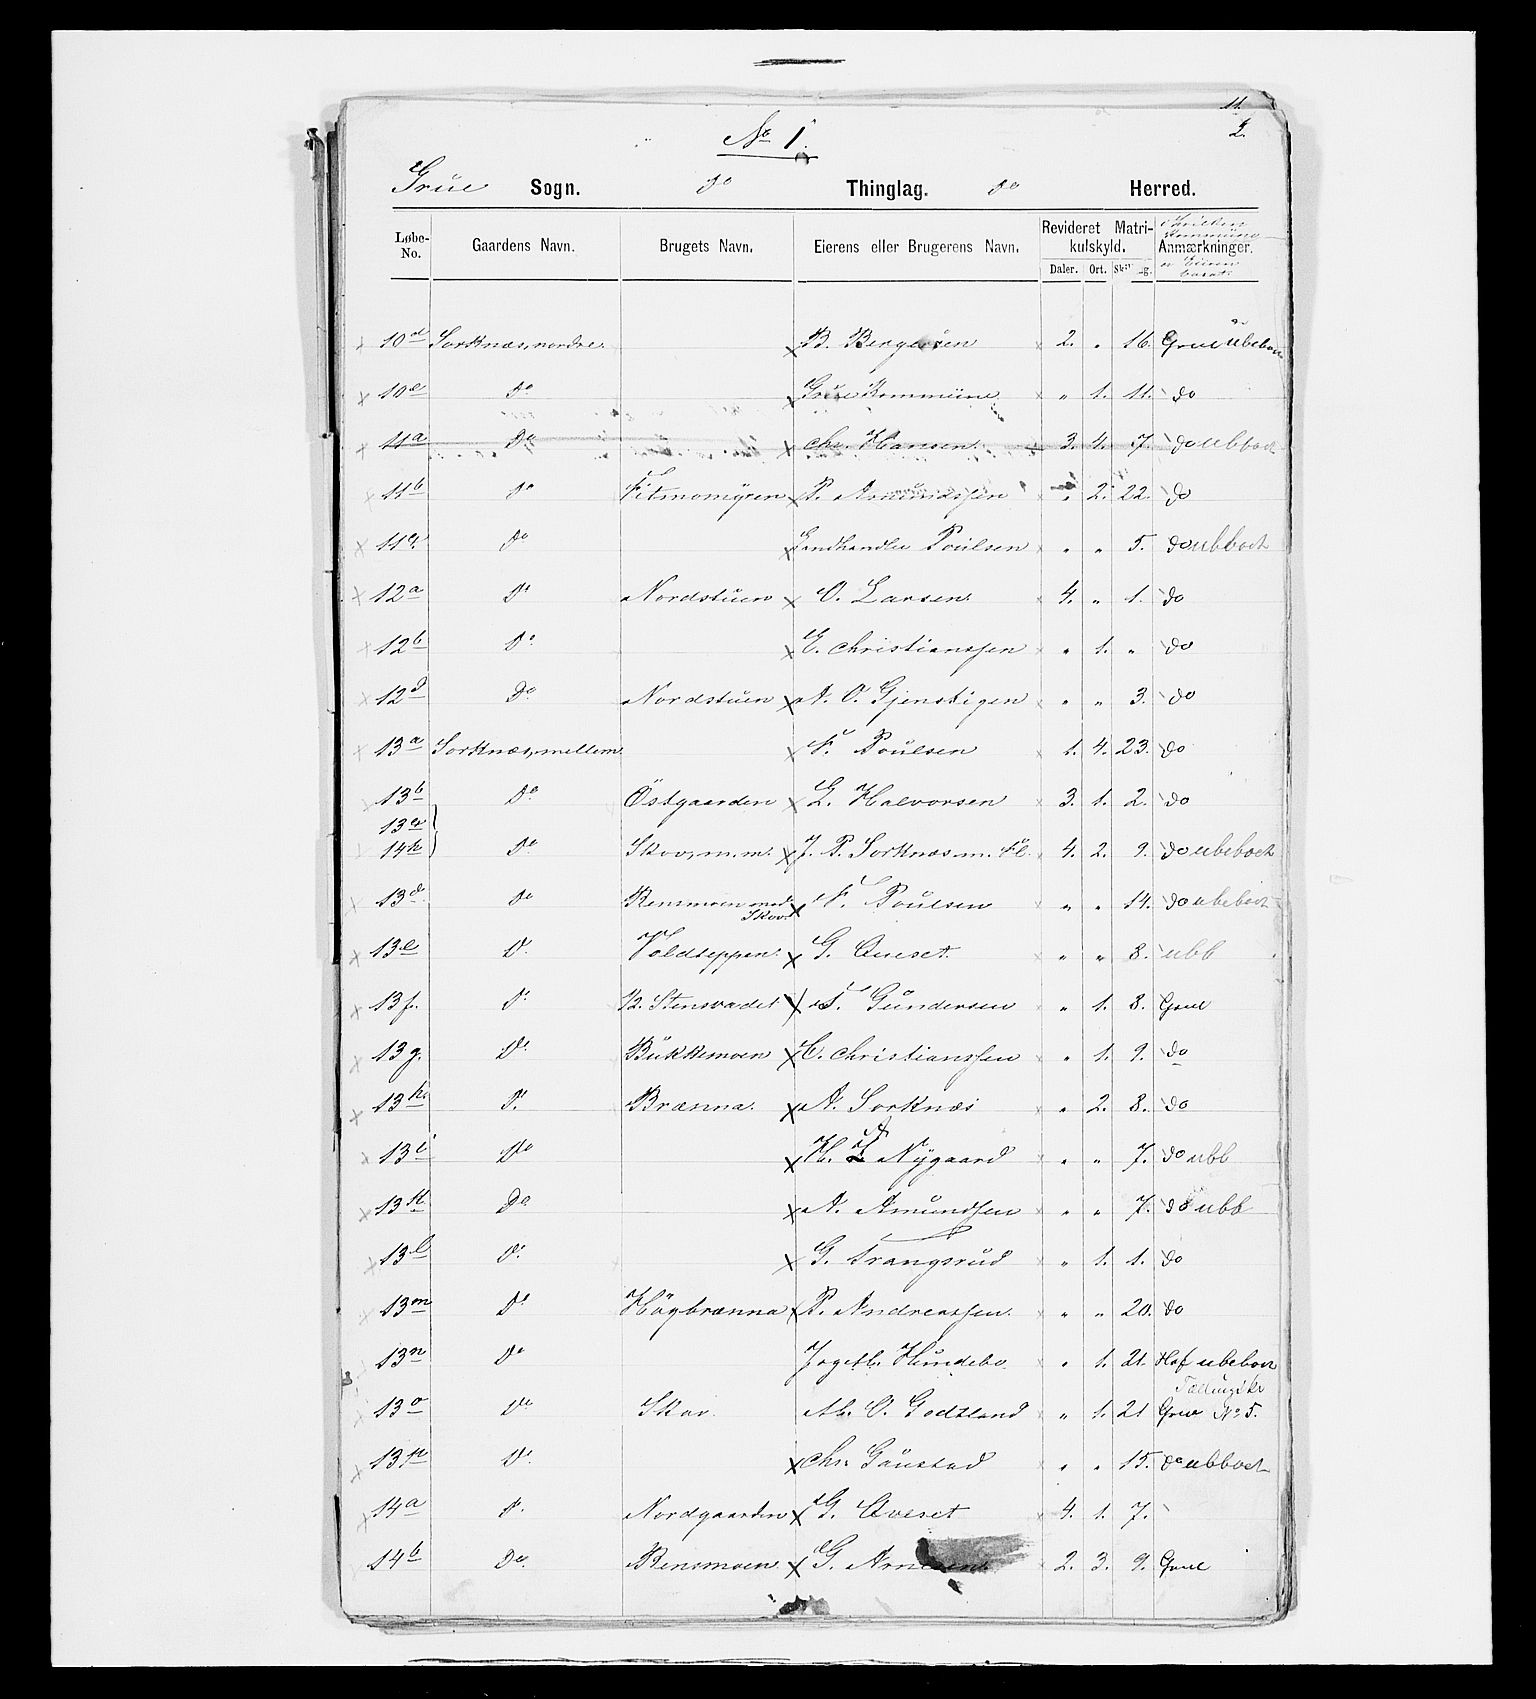 11.
2.
No 1.
Grue Sogn. do Thinglag. do Herred.
Løbe-No. Gaardens Navn. Brugets Navn. Eierens eller Brugerens Navn. Revideret Matrikulskyld. Daler. Ort. Anmærkninger.
10d Sorknæs, nordre. B. Bergersen 2. " 16. Grue Ubeboet
10e Do Grue Kommune " 1. 11. do
11a Do Chr. Hansen. 3. 4. 7. do ubboet
11b Do Fitmomyren P. Amundssen " 2. 22. do
Do Landhandler Poulsen " " 5. do ubboet
12a Do Nordstuen O. Larsen. 4. " 1. do
12b Do E. Christianssen " 1. " do
12d Do Nordstuen A. O. Gjenstigen " " 3. do
13a Sorknæs, mellem F. Poulsen 1. 4. 23. do
13b Do Östgaarden L. Halvorsen 3. 1. 2. do
13c
14h Do Skov, m. m. J. P. Sorknæs m. Fl. 4. 2. 9. do ubeboet
13d Do Rensmoen med Skov. F. Poulsen " " 14. do ubeboet
13e Do Voldteppen. G. Qveset. " " 8. ubb
13f. Do N. Stensvadet T. Gundersen " 1. 8. Grue
13g. Do Bukkemoen C. Christianssen " 1. 9. do
13h Do Brænna. A. Sorknæs " 2. 8. do
13i Do H. A Nygaard " " 7. do ubb
13k Do A. Amundsen " " 7. do ubb
13l Do G. Trangsrud " 1. 1. do
13m Do Högbrænna P. Andreassen. " " 20. do
13n Do Hundebo " 1. 21. Hof ubeboet
13o Do Skov. O. Godtland " 1. 21 Grue Tællingskr No 5.
13p Do Chr. Gaustad " " 15. do ubboet
14a Do Nordgaarden G. Qveset 4. 1. 7.
14b Do Rensmoen G. Arnesen 2. 3. 9. Grue